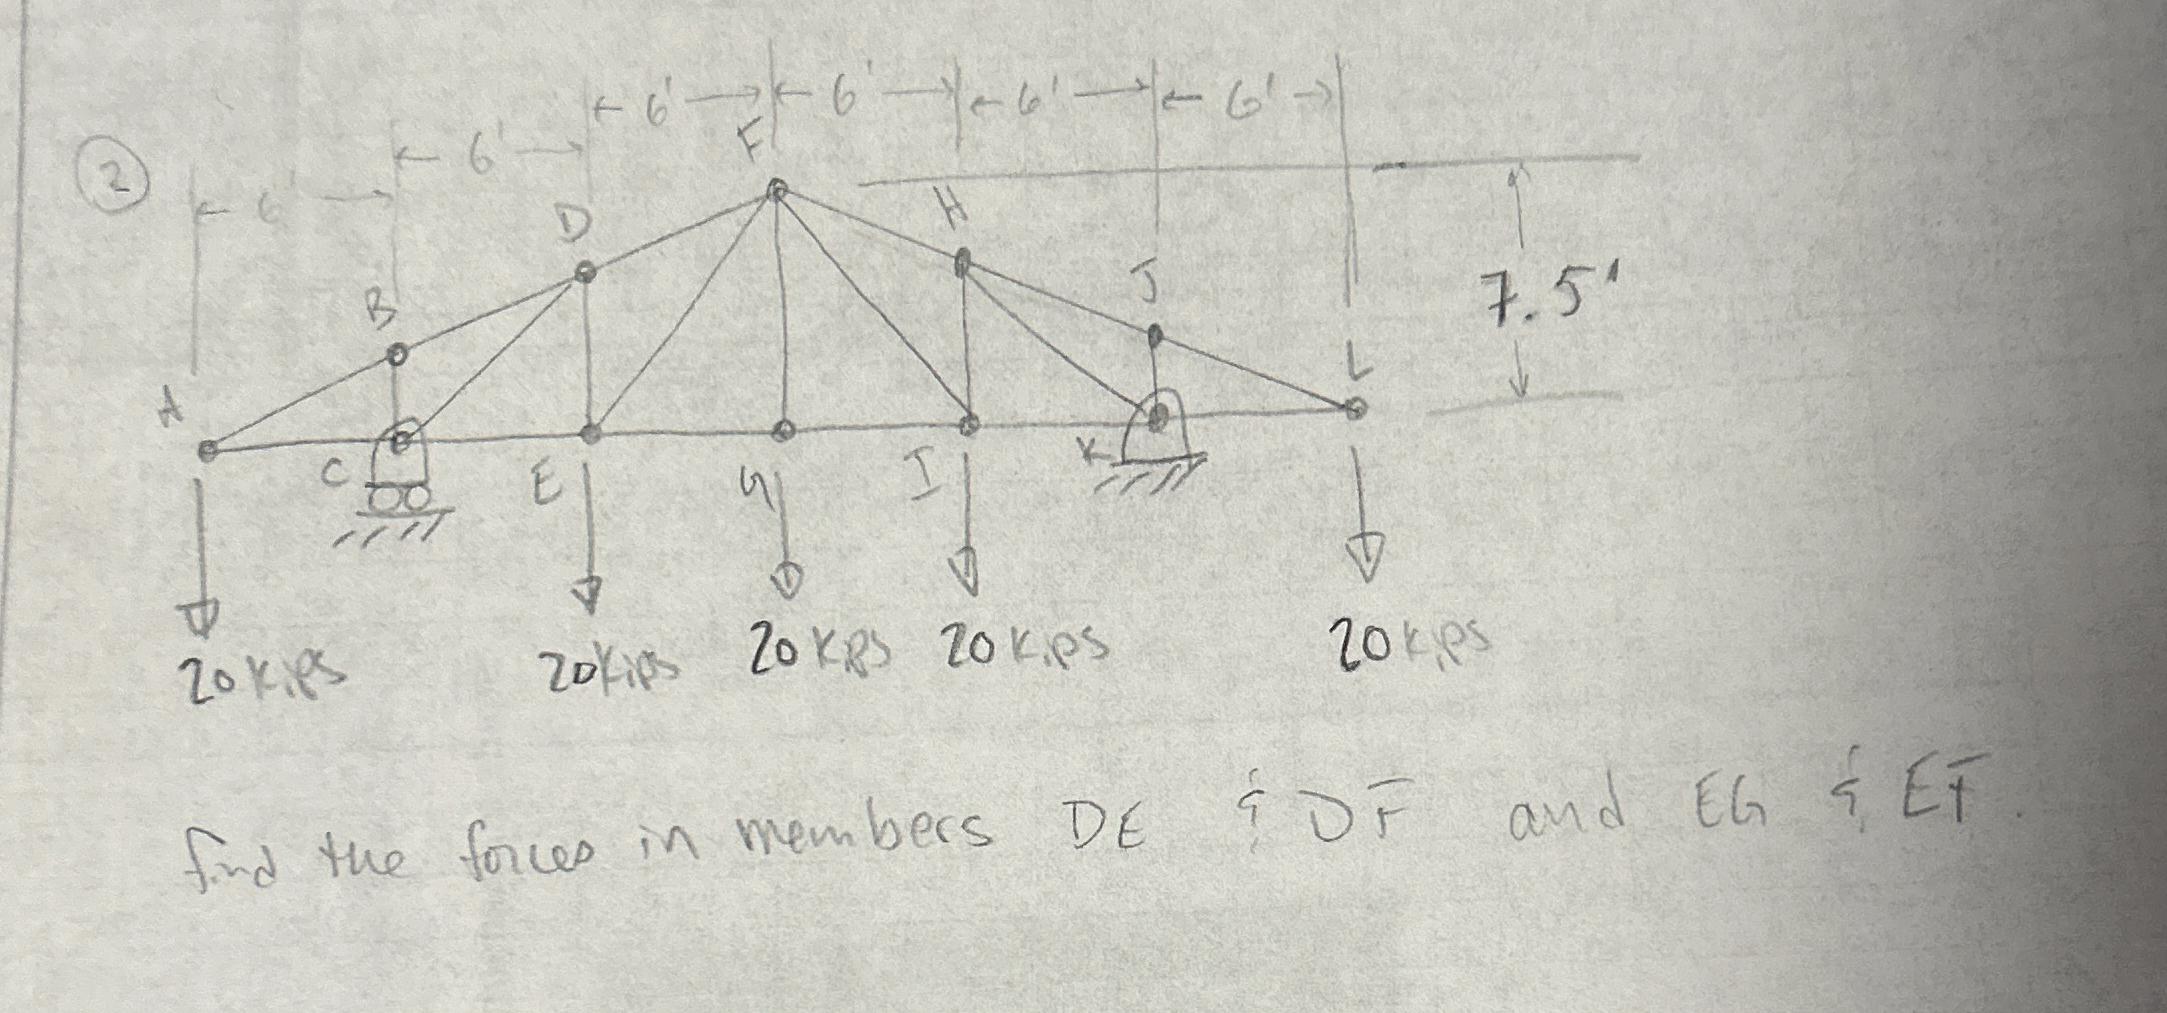 6' 6' 6' 6'
6'
2
6'
F
H
D
J
B
7.5'
L
A
C E G I K
20 Kips 20 Kips 20 Kips 20 Kips 20 Kips
find the forces in members DE & DF and EG & EF.